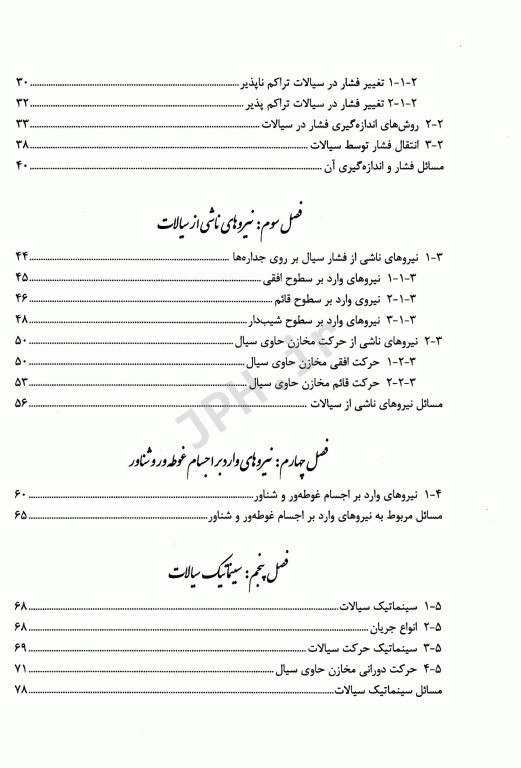 ۱-۱-۲ تغییر فشار در سیالات تراکم ناپذیر ........ ۳۰
۲-۱-۲ تغییر فشار در سیالات تراکم پذیر ........ ۳۲
۲-۲ روش‌های اندازه‌گیری فشار در سیالات ........ ۳۳
۳-۲ انتقال فشار توسط سیالات ........ ۳۸
مسائل فشار و اندازه‌گیری آن ........ ۴۰
فصل سوم: نیروهای ناشی از سیالات
۱-۳ نیروهای ناشی از فشار سیال بر روی جداره‌ها ........ ۴۴
۱-۱-۳ نیروهای وارد بر سطوح افقی ........ ۴۵
۲-۱-۳ نیروی وارد بر سطوح قائم ........ ۴۶
۳-۱-۳ نیروهای وارد بر سطوح شیب‌دار ........ ۴۸
۲-۳ نیروهای ناشی از حرکت مخازن حاوی سیال ........ ۵۰
۱-۲-۳ حرکت افقی مخازن حاوی سیال ........ ۵۰
۲-۲-۳ حرکت قائم مخازن حاوی سیال ........ ۵۳
مسائل نیروهای ناشی از سیالات ........ ۵۶
JPH.ir
فصل چهارم: نیروهای وارد بر اجسام غوطه‌ور و شناور
۱-۴ نیروهای وارد بر اجسام غوطه‌ور و شناور ........ ۶۰
مسائل مربوط به نیروهای وارد بر اجسام غوطه‌ور و شناور ........ ۶۵
فصل پنجم: سینماتیک سیالات
۱-۵ سینماتیک سیالات ........ ۶۸
۲-۵ انواع جریان ........ ۶۸
۳-۵ سینماتیک حرکت سیالات ........ ۶۹
۴-۵ حرکت دورانی مخازن حاوی سیال ........ ۷۱
مسائل سینماتیک سیالات ........ ۷۸